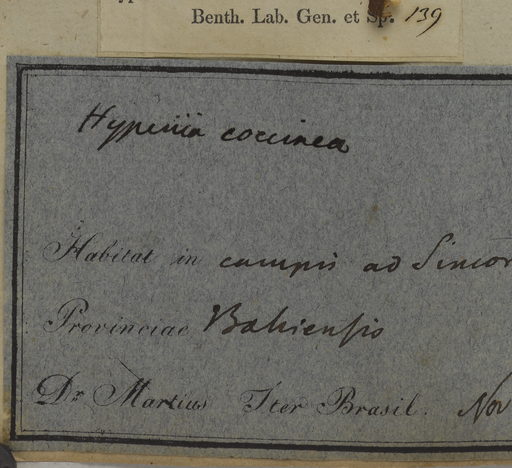 Benth. Lab. Gen. et Sp. 139
Hypenia coccinea
Habitat in campis ad Sincor
Provinciae Bahiensis
Dr Martius Iter Brasil. Nov